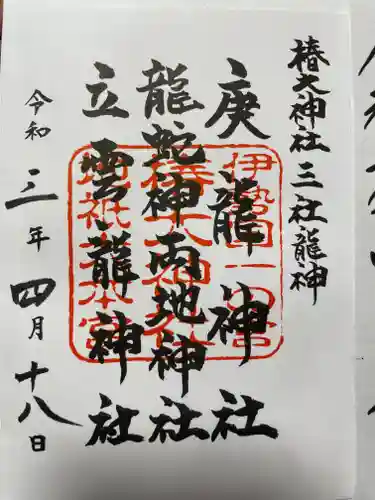 椿大神社三社龍神
庚龍神社
龍蛇神両地神社
立雲龍神社
令和三年四月十八日
伊勢国一の宮
椿大神社
地祇大本宮